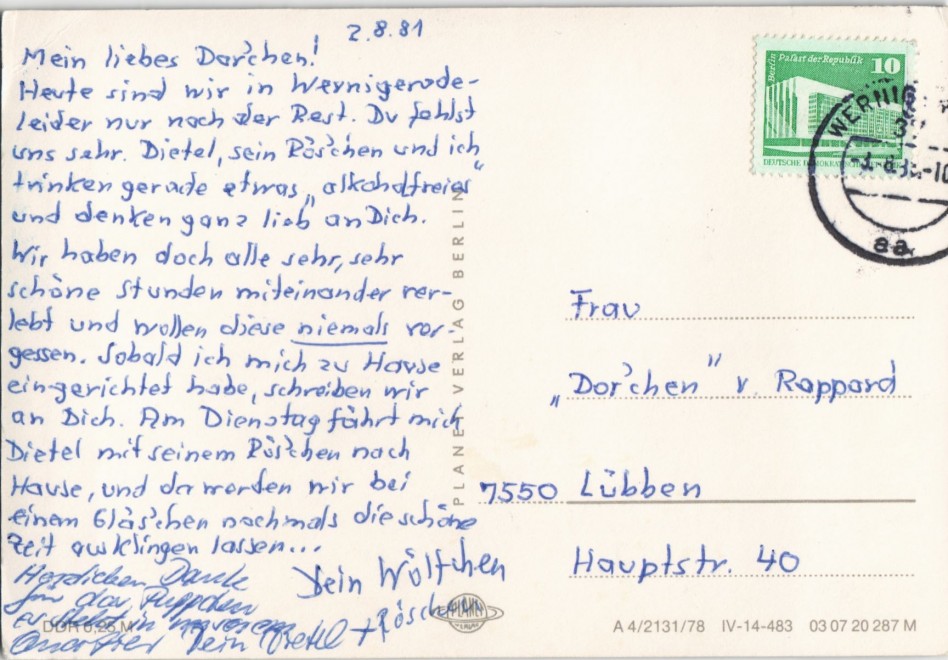 2.8.81
Mein liebes Dor'chen!
Heute sind wir in Wernigerode-
leider nur noch der Rest. Du fehlst
uns sehr. Dietel, sein Rös'chen und ich
trinken gerade etwas „alkoholfreies"
und denken ganz lieb an Dich.
Wir haben doch alle sehr, sehr
schöne Stunden miteinander ver-
lebt und wollen diese niemals ver-
gessen. Sobald ich mich zu Hause
eingerichtet habe, schreiben wir
an Dich. Am Dienstag fährt mich
Dietel mit seinem Rös'chen nach
Hause, und da werden wir bei
einem Gläs'chen nochmals die schöne
Zeit ausklingen lassen...
Dein Wölfchen
Herzlichen Dank
für das Püppchen
Dein Dietel + Röschen
PLANET VERLAG BERLIN
Berlin Palast der Republik 10
DEUTSCHE DEMOKRATISCHE
WERNIG
aa
Frau
„Dor'chen" v. Rappard
7550 Lübben
Hauptstr. 40
PLANET
DDR 0,25 M
A 4/2131/78 IV-14-483 03 07 20 287 M